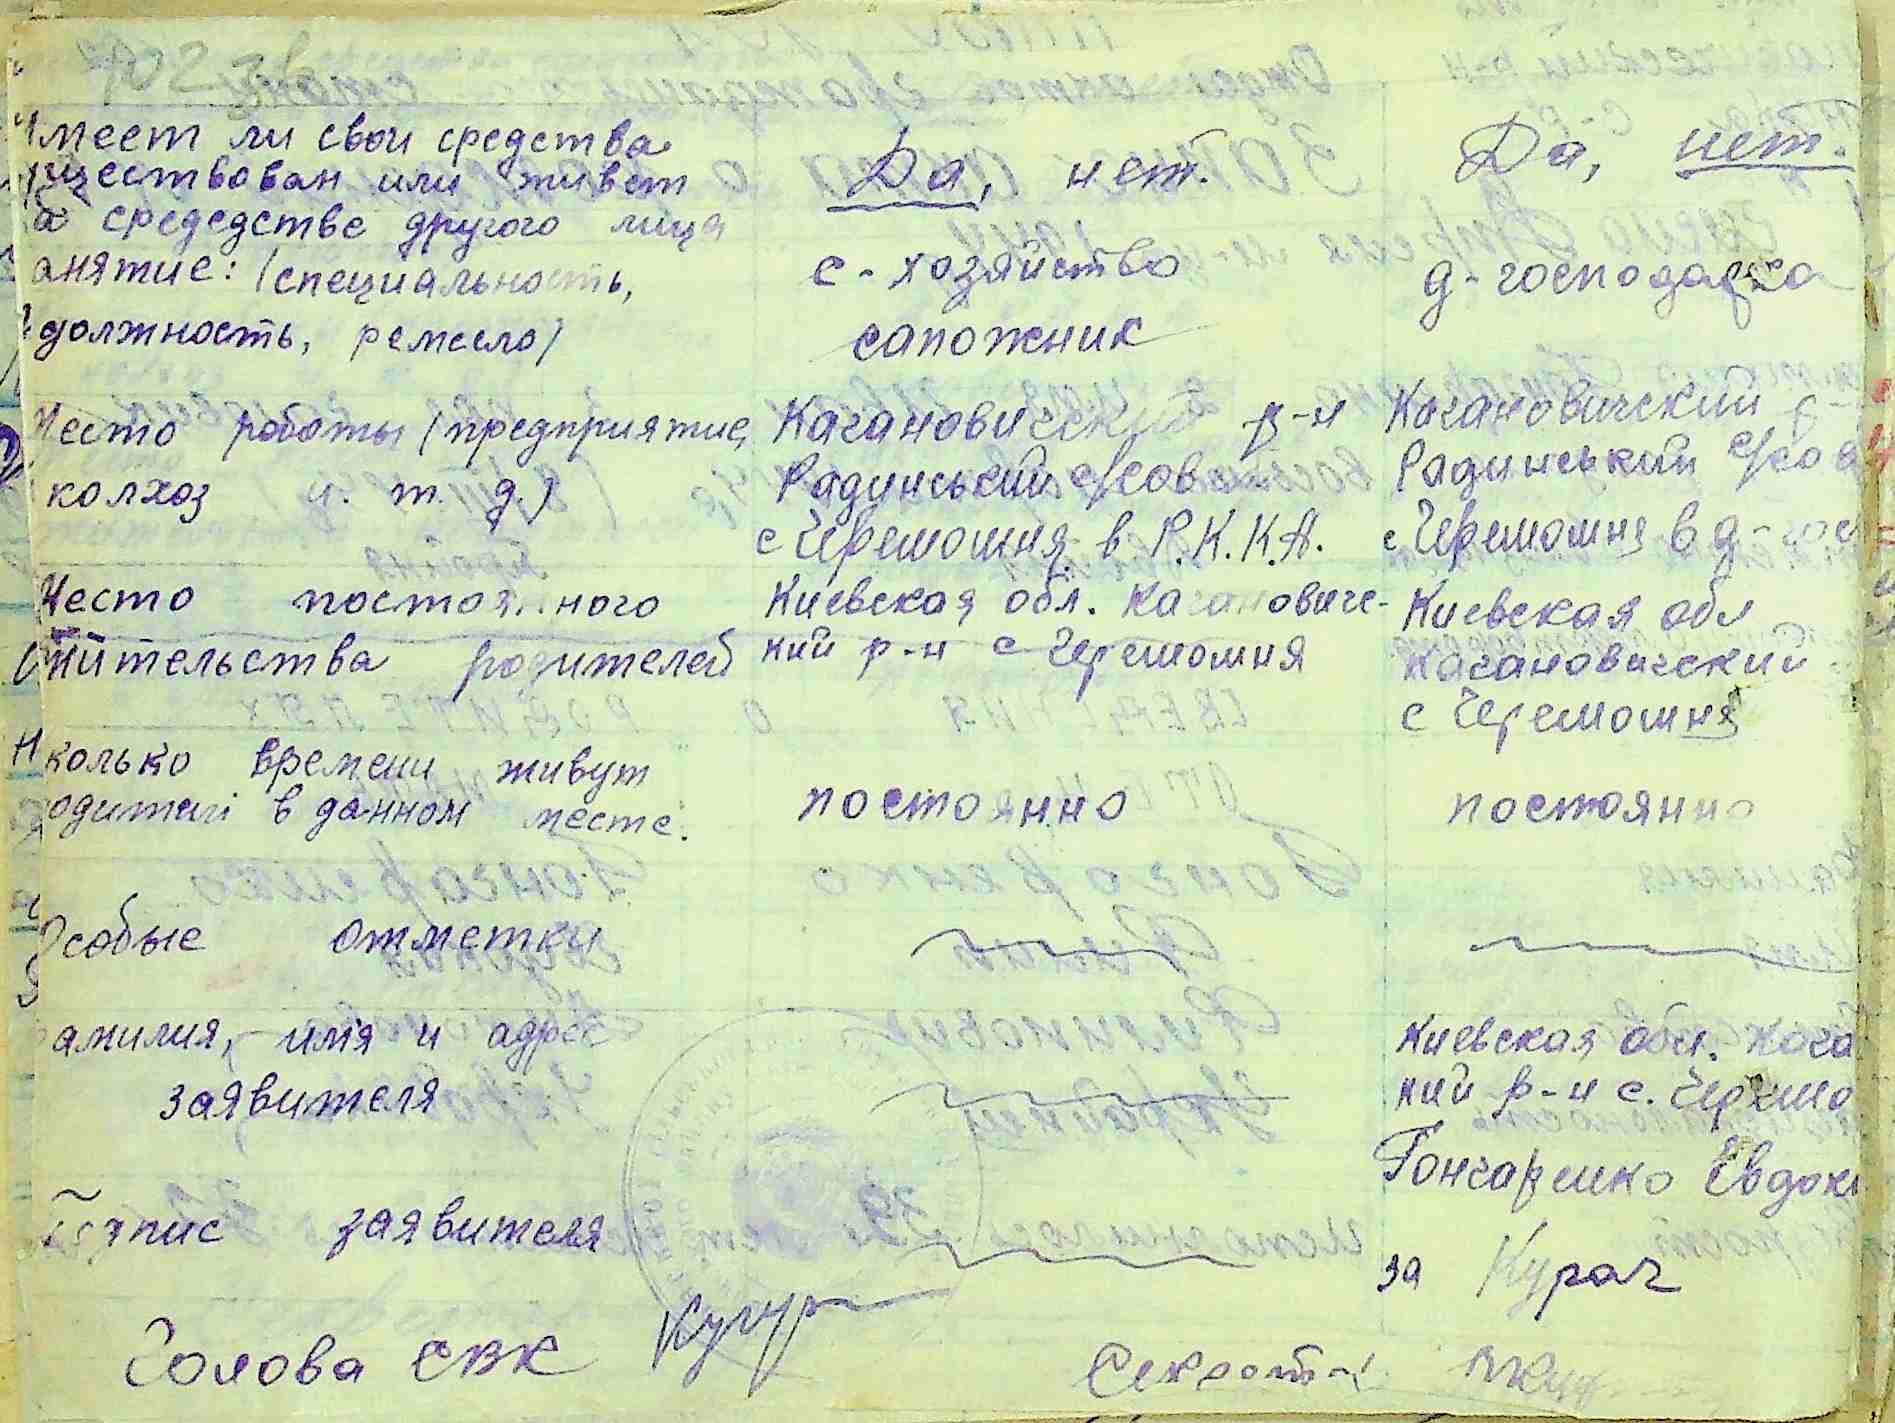 Имеет ли свои средства
существован или живет
на средедстве другого лица
Да, нет.
Да, нет.
занятие: (специальность,
должность, ремесло)
с-хозяйство
сапожник
д-господарка
Место роботы (предприятие,
колхоз и. т. д.)
Кагановический р-н
Радунський с/сов
с Черемошня в Р.К.К.А.
Кагановический р-
Радинський с/сов
с Черемошня в д-гос
Место постоянного
жительства родителей
Киевская обл. Кагановиче-
кий р-н с Черемошня
Киевская обл
Кагановичский
с Черемошня
сколько времени живут
родители в данном месте.
постоянно
постоянно
Особые отметки
фамилия, имя и адрес
заявителя
Киевская обл. Кага
кий р-н с. Черемо
Гончаренко Евдок
Подпис заявителя
за Курач
Голова СВК
Секрот